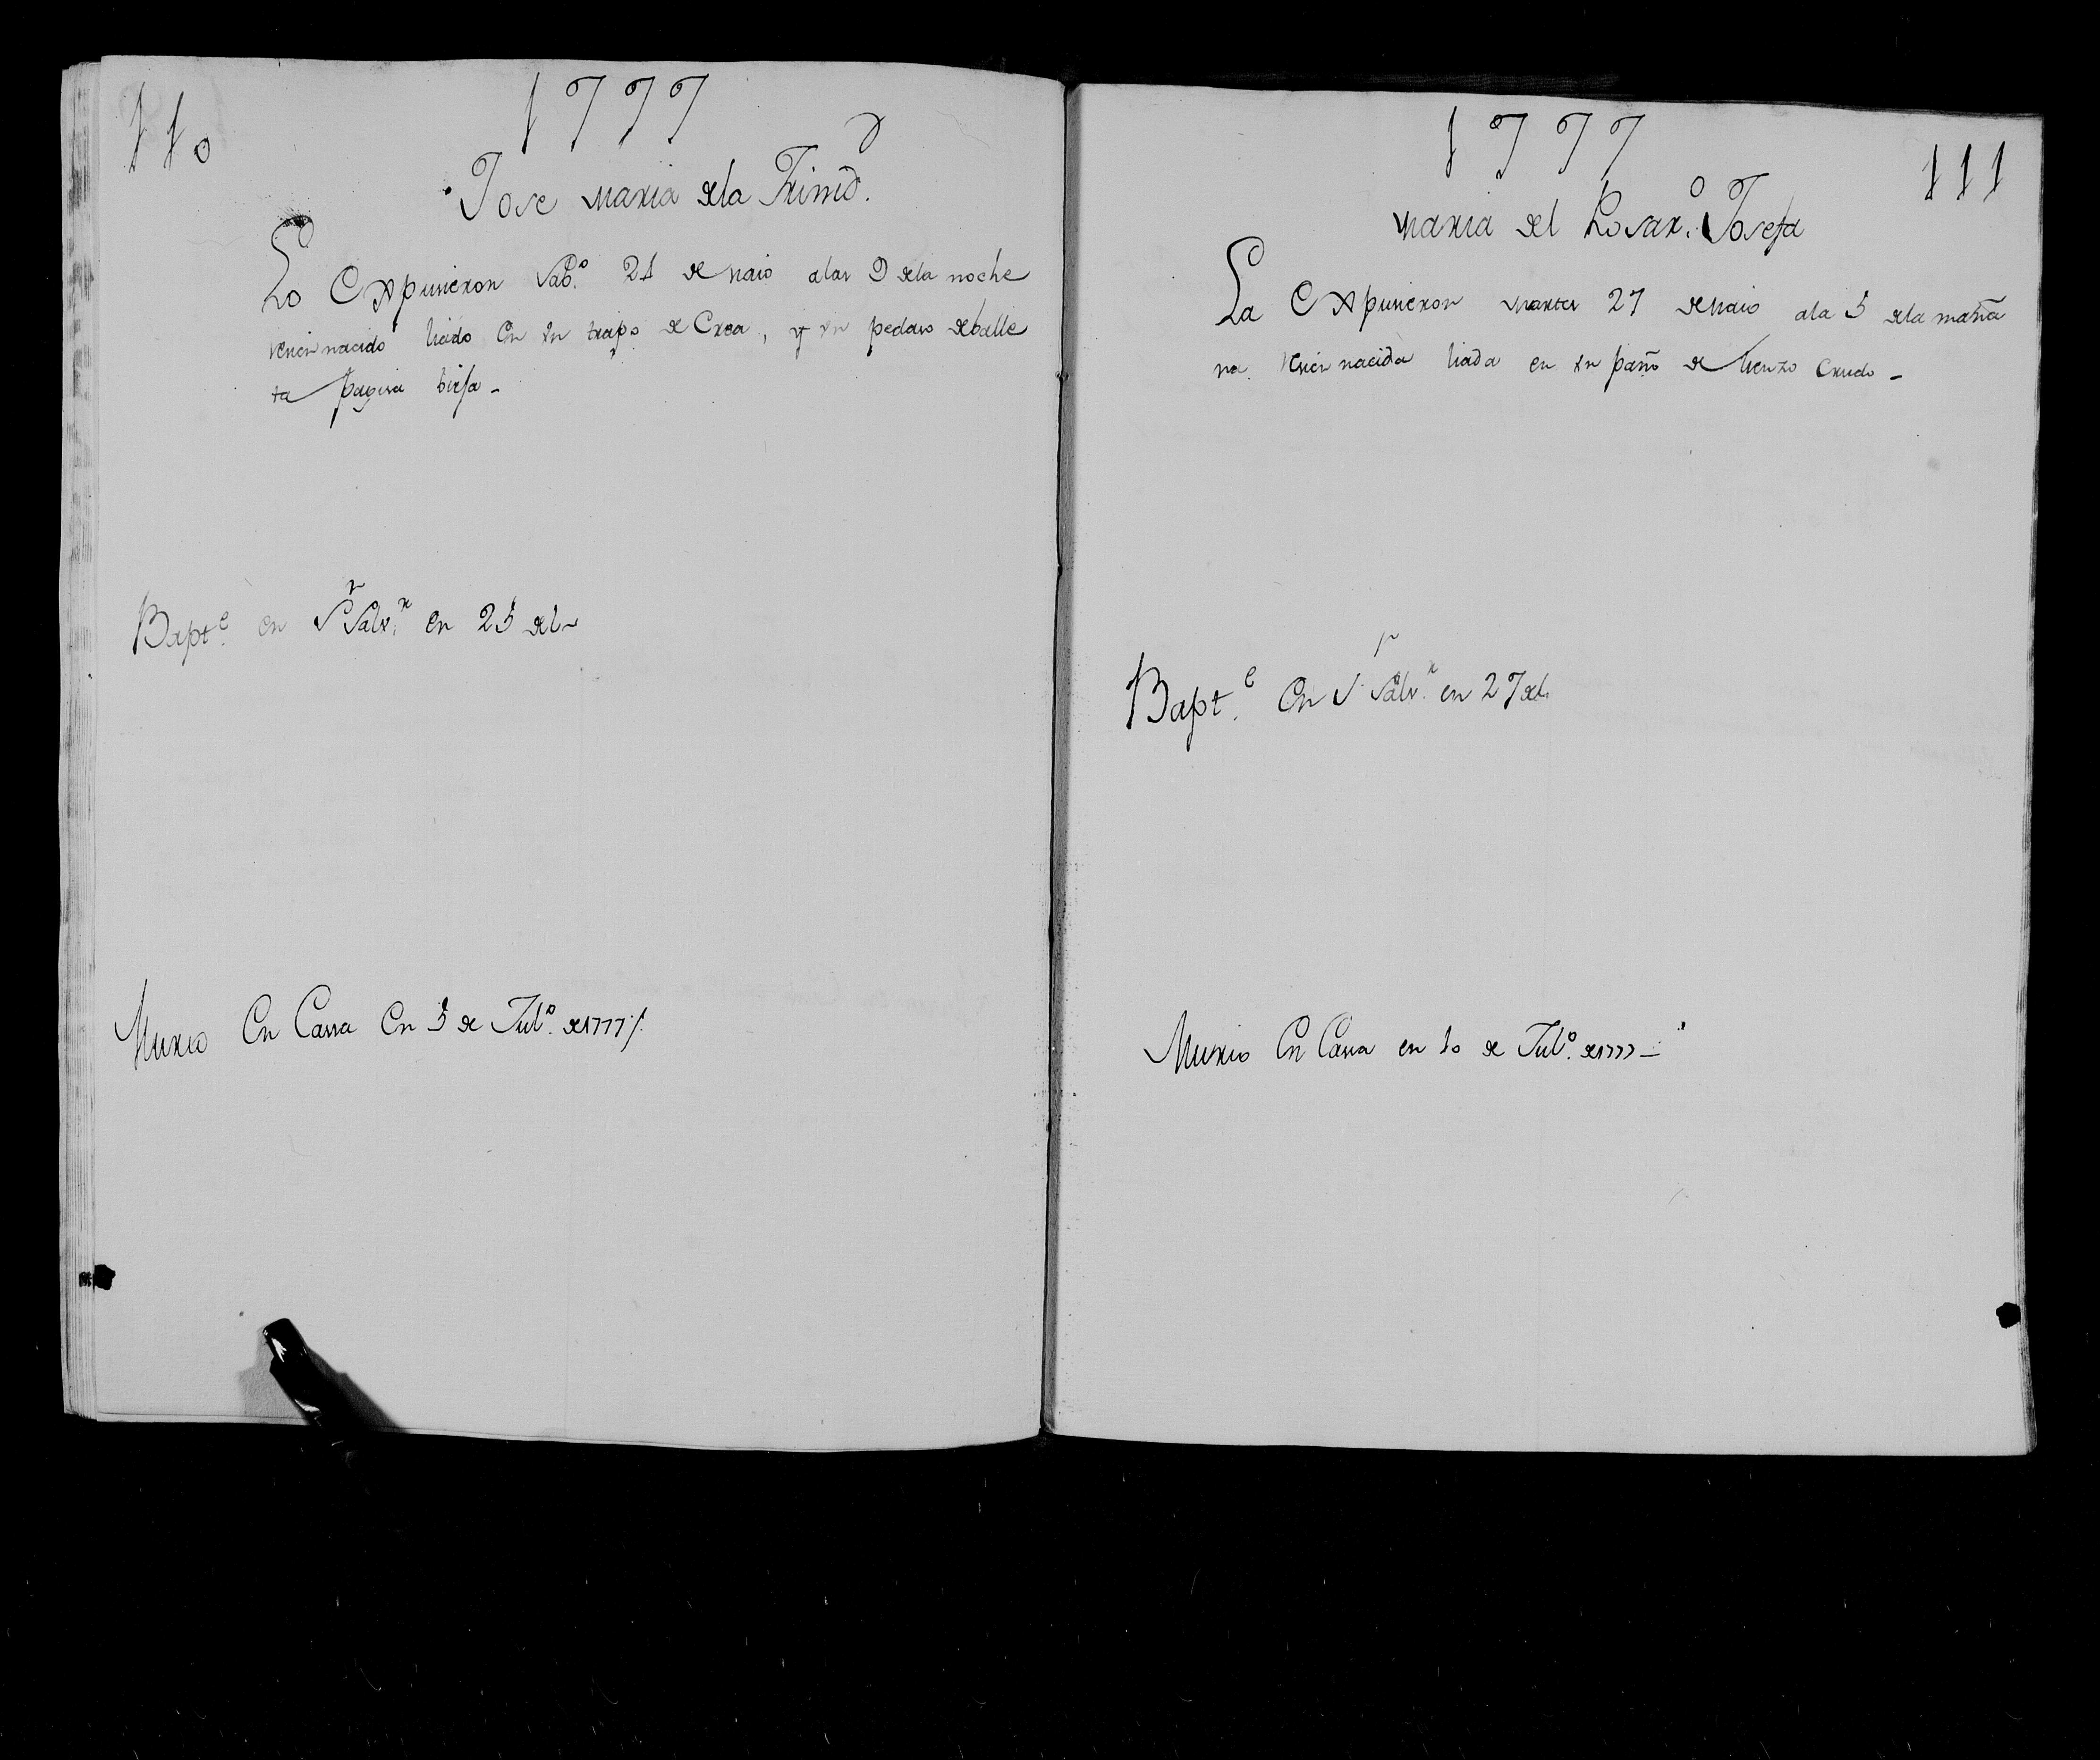 110
1777
Jose Maria de la Trinid.d
Lo Expusieron Sab.o 24 de Maio a las 9 de la noche
recien nacido liado en un trapo de Crea, y un pedaso de balle
ta pagisa biefa -
Bapt.e en S.n Salv.r en 25 del
Murio En Cassa En 5 de Jul.o de 1777
1777
111
Maria del Rosar.o Josefa
La Expusieron Martes 27 de Maio a la 5 de la maña
na recien nacida liada en un paño de lienzo Crudo -
Bapt.e En S.n Salv.r en 27 del
Murio En Cassa en 10 de Jul.o de 1777 -